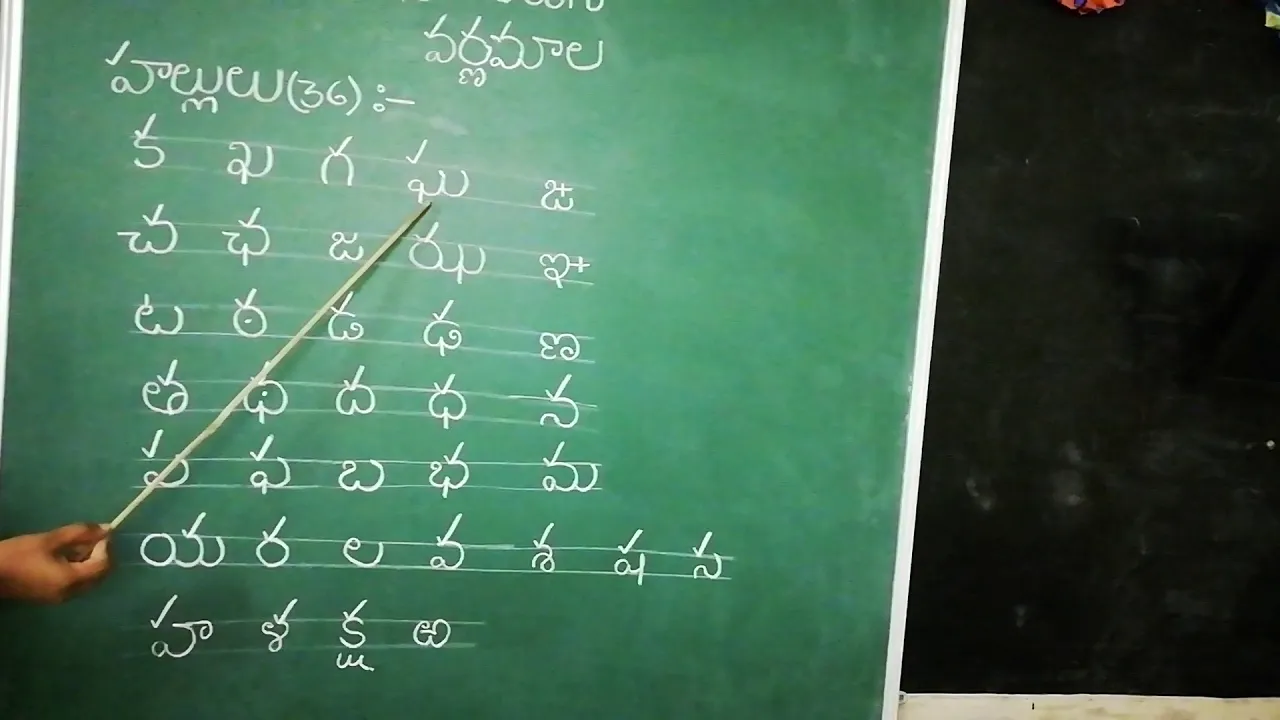 వర్ణమాల
హల్లులు(36) :-
క ఖ గ ఘ ఙ
చ ఛ జ ఝ ఞ
ట ఠ డ ఢ ణ
త థ ద ధ న
ప ఫ బ భ మ
య ర ల వ శ ష స
హ ళ క్ష ఱ